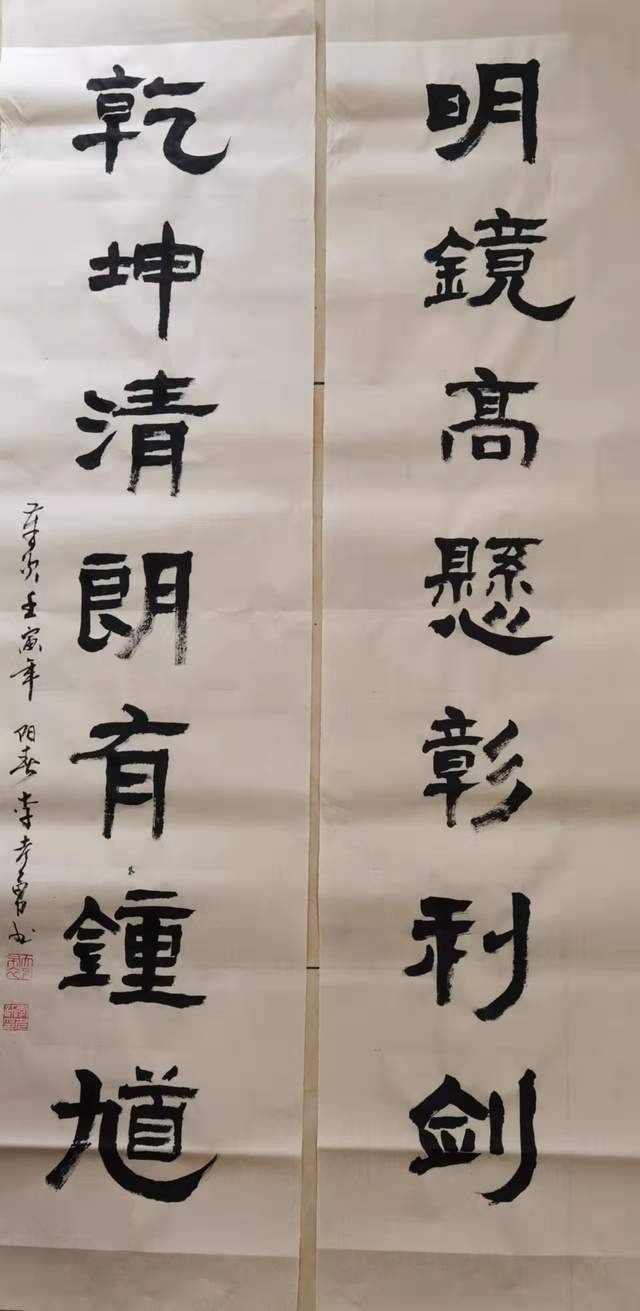 明鏡高懸彰利剑
乾坤清朗有鍾馗
壬寅年 阳春 李孝勇书